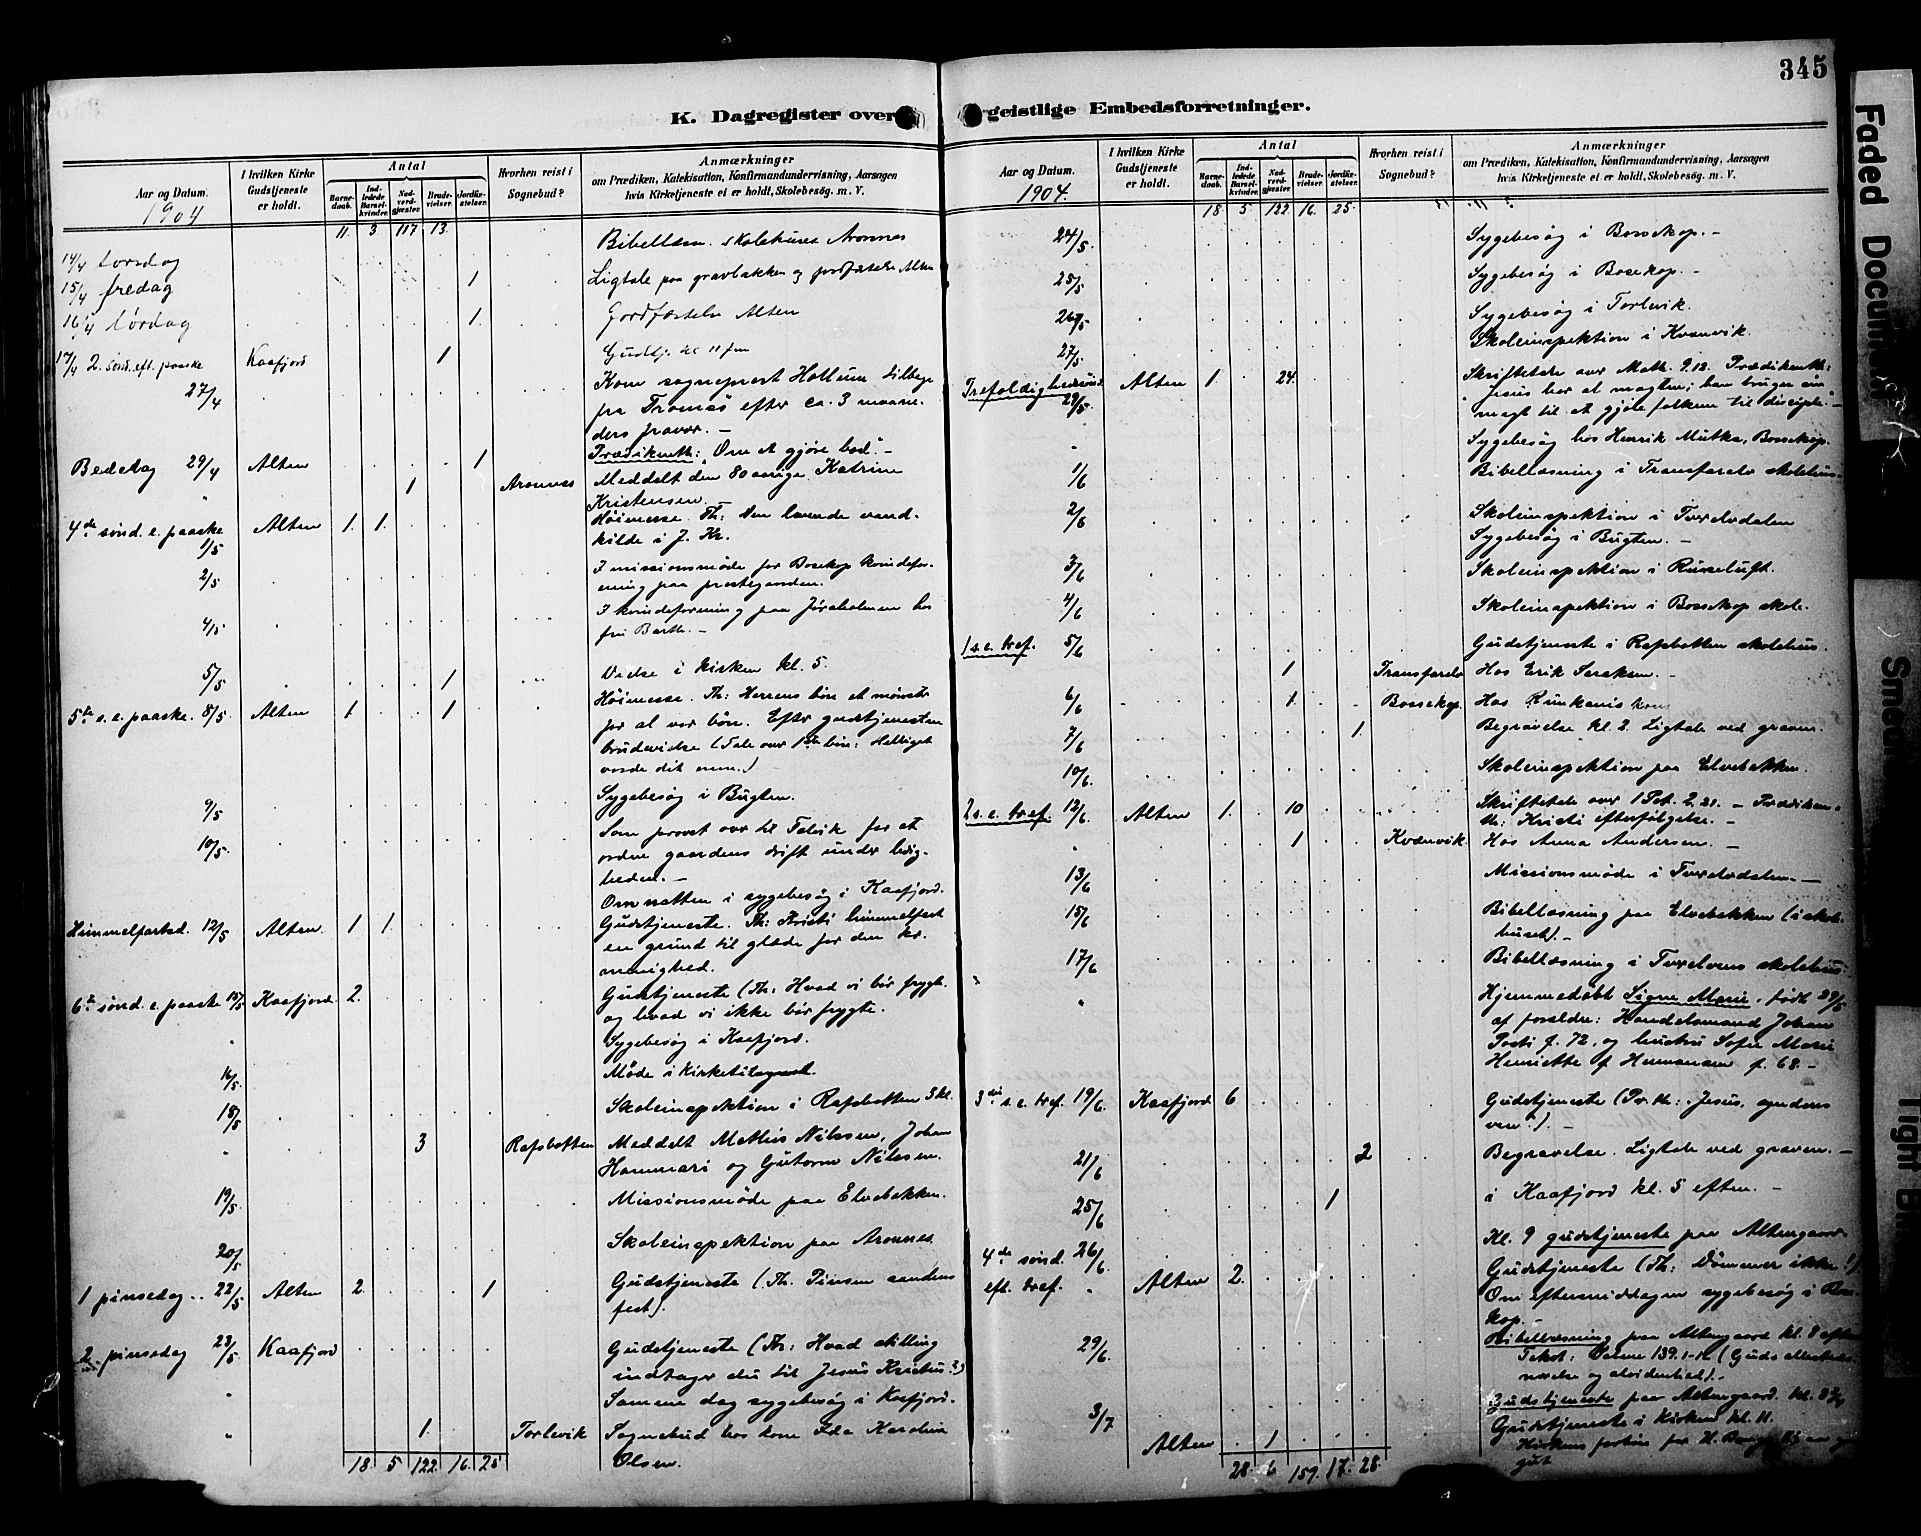 345
K. Dagregister over geistlige Embedsforretninger.
Aar og Datum.
1904
I hvilken Kirke Gudstjeneste er holdt.
Antal
Barnedaab.
Indledede Barselkvinder.
Nadverdgjester.
Brudevielser.
Jordfæstelser.
Hvorhen reist i Sognebud?
Anmærkninger
om Prædiken, Katekisation, Konfirmandundervisning, Aarsagen
hvis Kirketjeneste et er holdt, Skolebesøg. m. V.
11. 3 117 13.
14/4 torsdag Bibellæsn. skolehuset Aronnes
15/4 fredag 1 Ligtale paa gravbakken og jordfæstelse Alten
16/4 lørdag 1. Jordfæstelse Alten
17/4 2. sønd. eft. paaske Kaafjord 1 Gudstj. kl 11 fm
27/4 Kom sogneprest Hollum tilbage
fra Tromsø efter ca. 3 maane-
ders fravær. —
Bededag 29/4 Alten 1 Prædikenth: "Om at gjøre bod". —
" 1 Aronnes Meddelt den 80 aarige Katrine
Kristensen —
4de sønd. e. paaske 1/5 Alten 1. 1. Høimesse. Th: Den levende vand-
kilde i J. Kr.
2/5 I missionsmøde for Bosekop kvindefor-
ening paa prestegaarden.
4/5 I kvindeforening paa Jøraholmen hos
fru Barth. —
5/5 1 Vielse i kirken kl. 5.
5te s. e. paaske. 8/5. Alten 1 1 Høimesse. Th: Herrens bøn et mønster
for al vor bøn. Efter gudstjenesten
brudevielse (Tale over 1ste bøn: Helliget
vorde dit navn.)
9/5 Sygebesøg i Bugten.
10/5. Som provst over til Talvik for at
ordne gaardens drift under ledig-
heden. —
Om natten i sygebesøg i Kaafjord.
Himmelfartsd. 12/5 Alten. 1 1. Gudstjeneste. Th: Kristi himmelfart
en grund til glæde for den kr.
menighed.
6te sønd. e. paaske 15/5 Kaafjord. 2. Gudstjeneste (Th: Hvad vi bør frygte
og hvad vi ikke bør frygte.
" Sygebesøg i Kaafjord.
16/5 Møde i Kirketilsynet.
18/5 Skoleinspektion i Rafsbotten 3 kl.
" 3 Rafsbotten Meddelt Mathis Nilssen, Johan
Hammari og Gutorm Nilssen.
19/5 Missionsmøde paa Elvebakken.
20/5 Skoleinspektion paa Aronnes
1 pinsedag .. 22/5 Alten 2. 1 Gudstjeneste (Th. Pinsen aandens
fest).
2. pinsedag 23/5 Kaafjord Gudstjeneste (Th: Hvad stilling
indtager du til Jesus Kristus?)
" Samme dag sygebesøg i Kaafjord.
" 1. Torlevik Sognebud hos kone Ida Karoline
Olsen.
18. 5 122. 16. 25
Aar og Datum.
1904.
I hvilken Kirke Gudstjeneste er holdt.
Antal
Barnedaab.
Indledede Barselkvinder.
Nadverdgjester.
Brudevielser.
Jordfæstelser.
Hvorhen reist i Sognebud?
Anmærkninger
om Prædiken, Katekisation, Konfirmandundervisning, Aarsagen
hvis Kirketjeneste et er holdt, Skolebesøg. m. V.
18. 5. 122. 16. 25.
24/5. Sygebesøg i Bossekop. —
25/5 Sygebesøg i Bosekop. —
26/5 Sygebesøg i Torlevik.
27/5 Skoleinspektion i Kvænvik.
Trefoldighedssønd. 29/5. Alten 1. 24. Skriftetale over Math. 9.12. Prædikenth:
"Jesus har al magten; han bruger sin
magt til at gjøre folkene til disciple." —
Sygebesøg hos Henrik Mutka, Bossekop.
1/6 Bibellæsning i Transfarelv skolehus.
2/6 Skoleinspektion i Tverelvdalen
Sygebesøg i Bugten. —
3/6 Skoleinspektion i Russeluft.
4/6 Skoleinspektion i Bossekop skole.
1 s. e. tref. 5/6 Gudstjeneste i Rafsbotten skolehus.
1 Transfarelv Hos Erik Isaksen. —
6/6 1. Bossekop. Hos Runkanis kone
7/6 1. Begravelse kl. 2. Ligtale ved graven.
10/6. Skoleinspektion paa Elvebakken.
2 s. e. tref. 12/6. Alten 1. 10 Skriftetale over 1 Pet. 2. 21. — Prædiken-
th: Kristi efterfølgelse. —
" 1 Kvænvik. Hos Anna Andersen. —
13/6 Missionsmøde i Tverelvdalen. —
15/6 Bibellæsning paa Elvebakken (i skole-
huset). —
17/6 Bibellæsning i Tverelvens skolehus.
" Hjemmedøbt Signe Marie, født 29/5
af forældre: Handelsmand Johan
Posti f. 72, og hustru Sofie Marie
Henriette f. Hermansen f. 68. —
3die s. e. tref. 19/6. Kaafjord 6 Gudstjeneste (Pr. th: Jesus, synderes
ven.). —
21/6 2 Begravelse. Ligtale ved graven. —
25/6 1 i Kaafjord kl. 5 eften. —
4de sønd. 26/6. Kl. 9 gudstjeneste paa Altengaard.
eft. tref. " Alten 2. Gudstjeneste (Th: Dømmer ikke!)
Om eftermiddagen sygebesøg i Bosse-
kop. —
29/6. Bibellæsning paa Altengaard kl. 8 eften
Tekst: Salme 139. (Guds
nærelse og alvidenhed). —
3/7 Gudstjeneste paa Altengaard. kl.
Alten 1 Gudstjeneste i Kirken kl. 11.
Kirkens for
gut
28. 6 159. 17. 28.